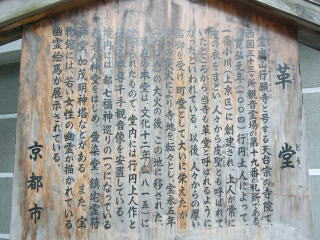 革堂
こうどう
霊麀山行願寺と号する天台宗の寺院で、
西国三十三ヶ所観音霊場の第十九番札所である。
寛弘元年(一〇〇四)行円上人によって
一条小川(上京区)に創建され、上人が常に
皮の衣をまとい、人々から皮聖とも呼ばれて
いたところから、当寺も革堂と呼ばれるように
なったといわれている。以来、人々からの厚い
信仰を受け、町堂として大いに栄えたが、
度々の災火により寺地を転々とし、宝永五年
(一七〇八)の大火の後、ここに移された。
現在の本堂は、文化十二年(一八一五)に
建てられたもので、堂内には行円上人作と
伝える本尊千手観音像を安置している。
境内には、都七福神巡りの一つになっている
寿老人神堂をはじめ、愛染堂、鎮宅霊符
神堂、加茂明神塔などがある。また、宝
物館には、若い女性の幽霊が描かれている
幽霊絵馬が展示されている。
京都市